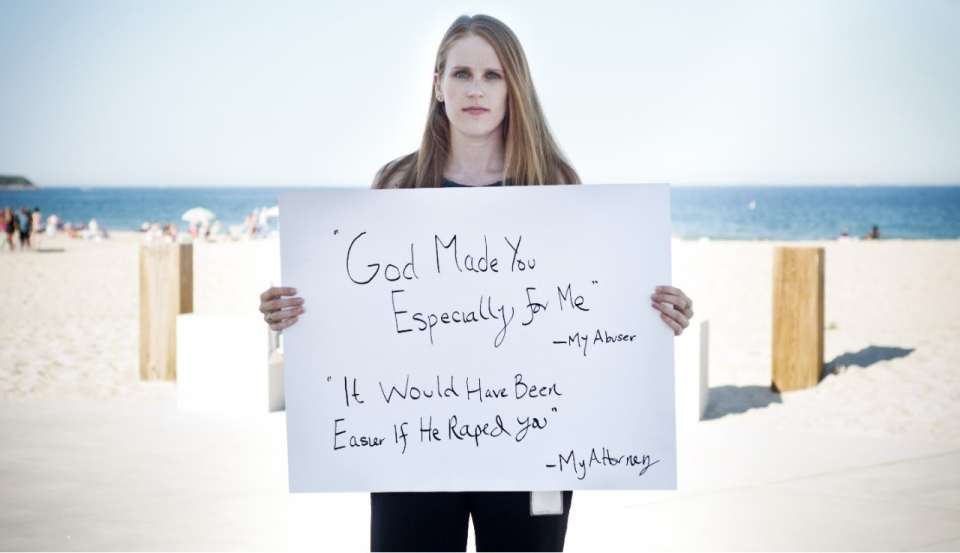 "God Made You
Especially for Me"
-My Abuser
"It Would Have Been
Easier If He Raped You"
-My Attorney